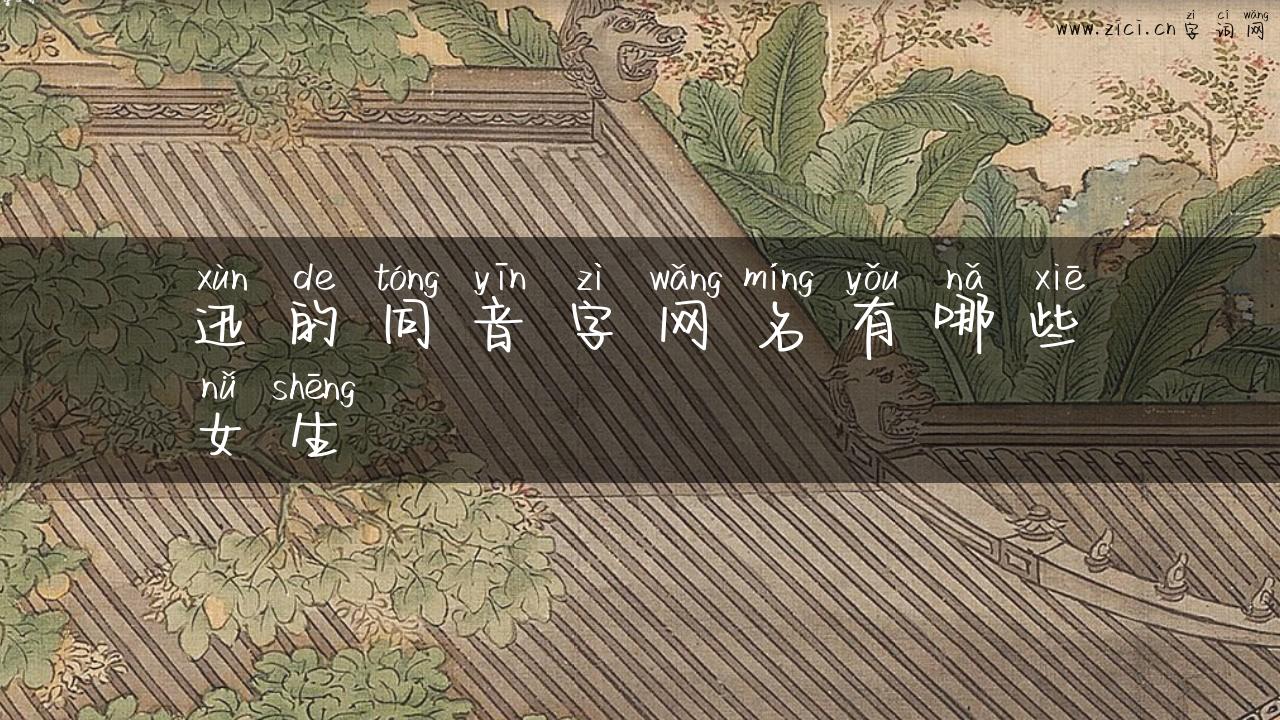 zì cí wǎng
www.zici.cn 字词网
xùn de tóng yīn zì wǎng míng yǒu nǎ xiē
迅的同音字网名有哪些
nǚ shēng
女生